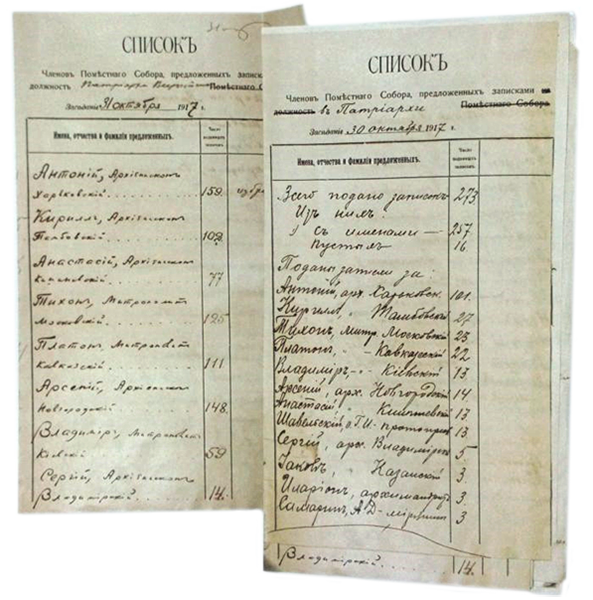 СПИСОКЪ
Членовъ Помѣстнаго Собора, предложенныхъ записками
должность Патріарха Всероссійскаго Помѣстнаго С
Засѣданіе 31 октября 1917 г.
Имена, отчества и фамиліи предложенныхъ.
Антоній, Архіепископъ
Харьковскій 159.
Кириллъ, Архіепископъ
Тамбовскій 109.
Анастасій, Архіепископъ
Кишиневскій 77
Тихонъ, Митрополитъ
Московскій 125
Платонъ, Митрополитъ
Кавказскій 111
Арсеній, Архіепископъ
Новгородскій 148.
Владиміръ, Митрополитъ
Кіевскій 59
Сергій, Архіепископъ
Владимірскій 14.
СПИСОКЪ
Членовъ Помѣстнаго Собора, предложенныхъ записками на
должность въ Патріархи Помѣстнаго Собора
Засѣданіе 30 октября 1917 г.
Имена, отчества и фамиліи предложенныхъ.
Всего подано записокъ 273
Изъ нихъ
съ именами — 257.
пустыхъ 16.
Поданы записки за:
Антоній, арх. Харьковск. 101.
Кириллъ, " Тамбовскій 27
Тихонъ, митр. Московскій 23
Платонъ, " Кавказскій 22
Владиміръ, " Кіевскій 13
Арсеній, арх. Новгородскій 14
Анастасій Кишиневскій 13
Шавельскій, Г.И. протопресв 13
Сергій, арх. Владимірск 5
Іаковъ, Казанскій 3
Иларіонъ, архимандритъ 3
Самаринъ, А.Д. мірянинъ 3
Владимірскій 14.